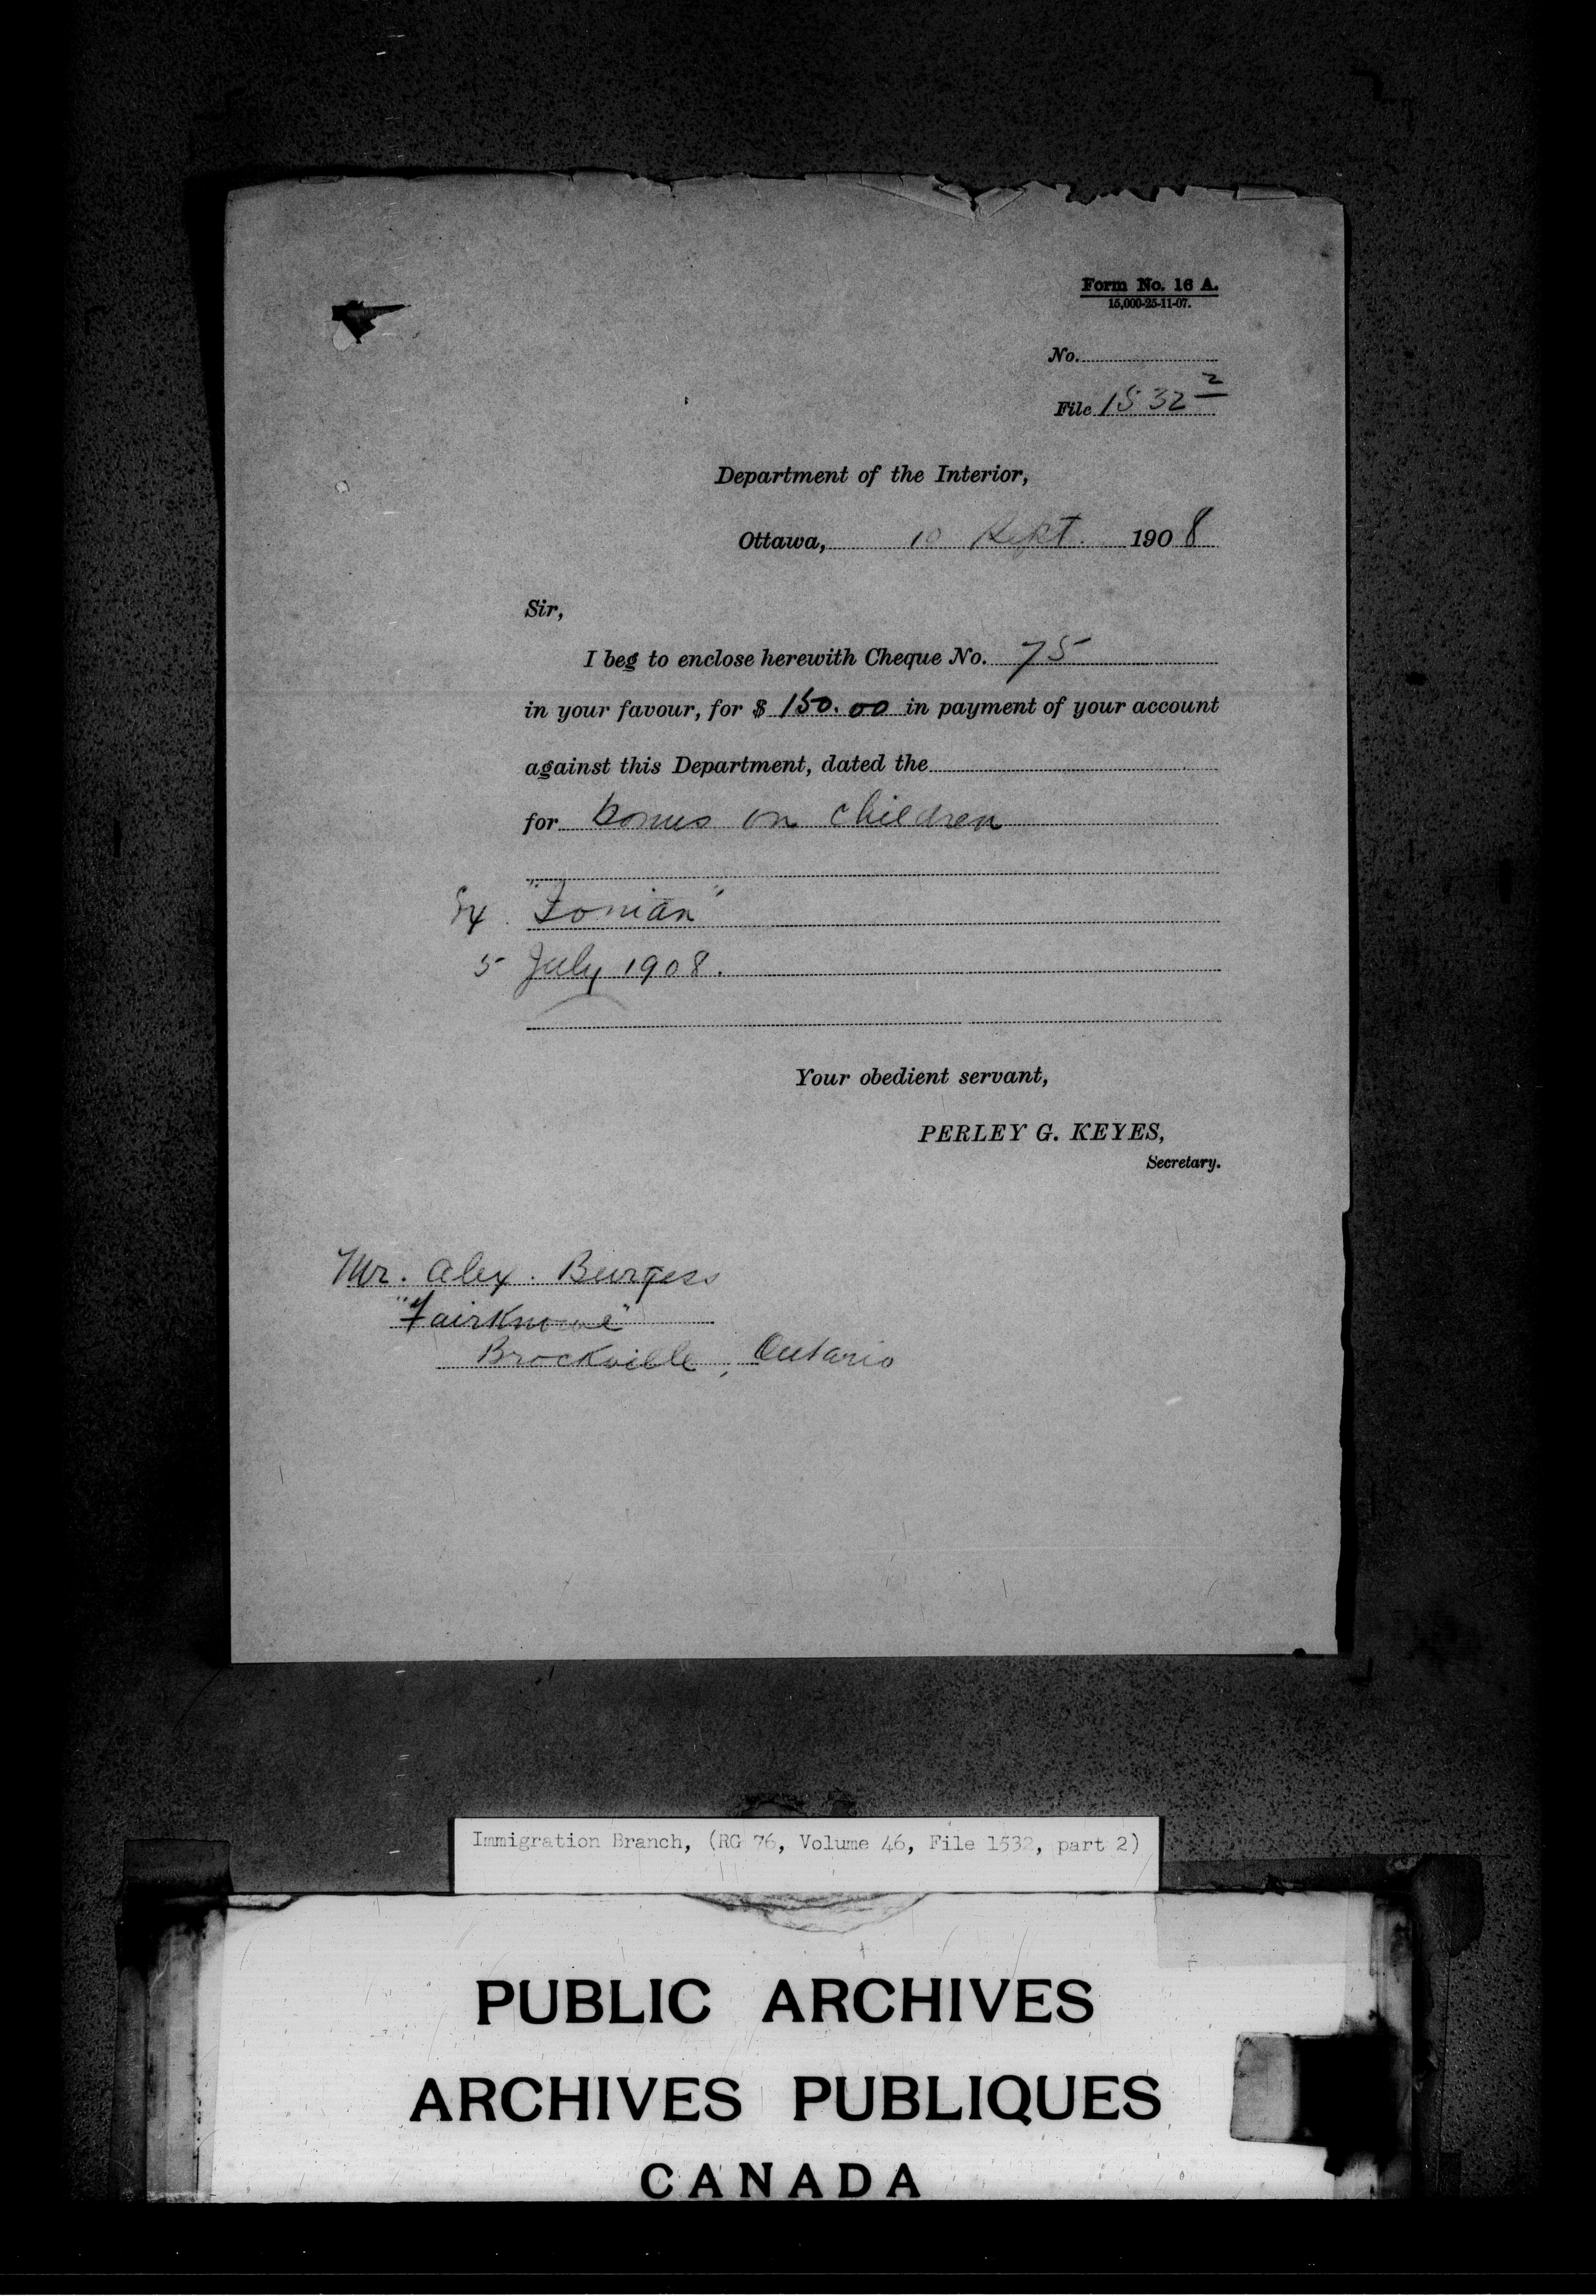 Form No. 16 A.
15,000-25-11-07.
No.
File 1532 2
Department of the Interior,
Ottawa, 10 Sept. 1908
Sir,
I beg to enclose herewith Cheque No. 75
in your favour, for $ 150.00 in payment of your account
against this Department, dated the
for bonus on children
Ex "Ionian"
5 July 1908.
Your obedient servant,
PERLEY G. KEYES,
Secretary.
Mr. Alex. Burgess
"Fairknowe"
Brockville, Ontario
Immigration Branch, (RG 76, Volume 46, File 1532, part 2)
PUBLIC ARCHIVES
ARCHIVES PUBLIQUES
CANADA